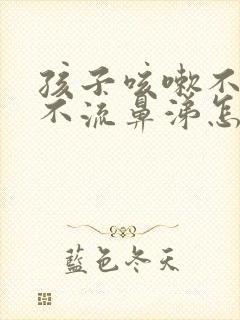 孩子咳嗽不
不流鼻涕怎
藍色冬天